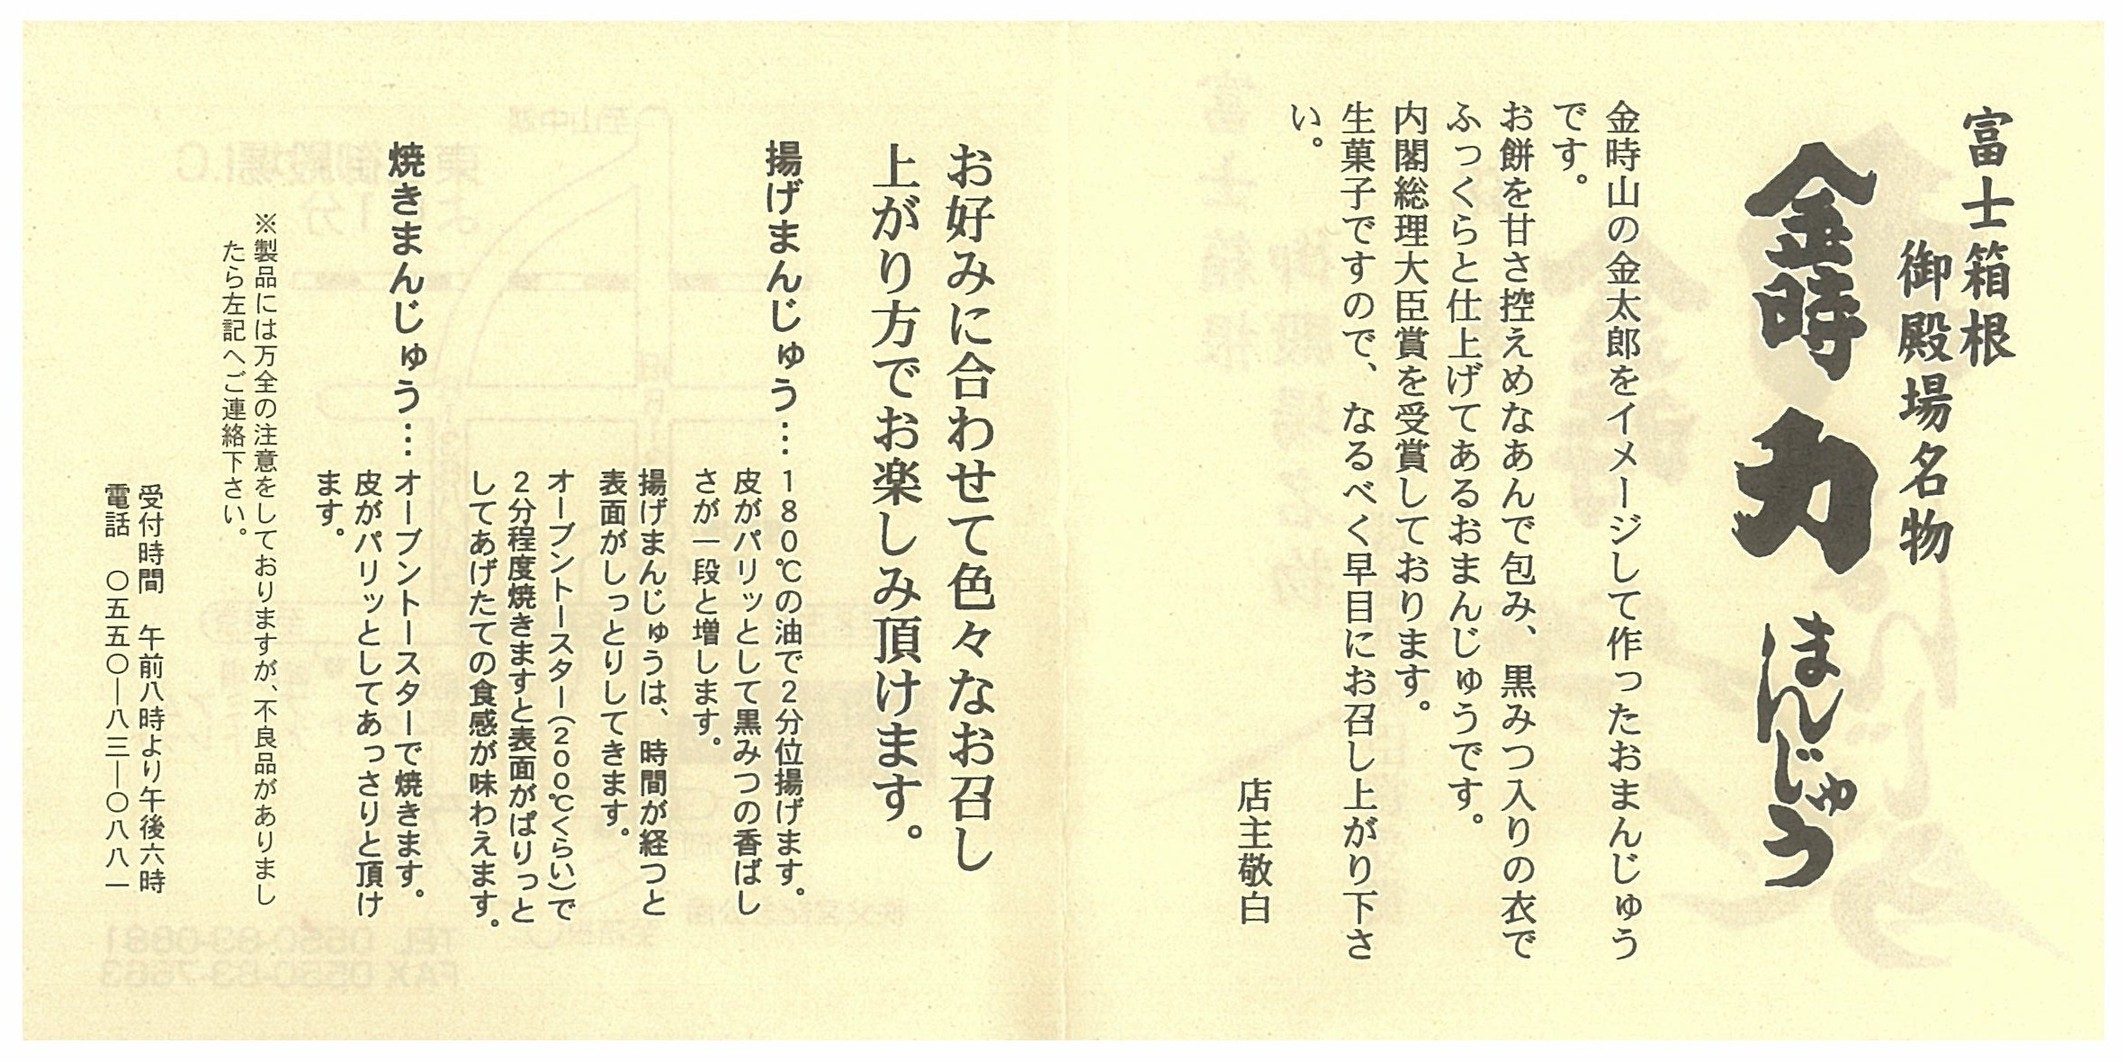 富士箱根
御殿場名物
金時力まんじゅう
金時山の金太郎をイメージして作ったおまんじゅう
です。
お餅を甘さ控えめなあんで包み、黒みつ入りの衣で
ふっくらと仕上げてあるおまんじゅうです。
内閣総理大臣賞を受賞しております。
生菓子ですので、なるべく早目にお召し上がり下さ
い。
店主敬白
お好みに合わせて色々なお召し
上がり方でお楽しみ頂けます。
揚げまんじゅう…180℃の油で2分位揚げます。
皮がパリッとして黒みつの香ばし
さが一段と増します。
揚げまんじゅうは、時間が経つと
表面がしっとりしてきます。
オーブントースター(200℃くらい)で
2分程度焼きますと表面がぱりっと
してあげたての食感が味わえます。
焼きまんじゅう…オーブントースターで焼きます。
皮がパリッとしてあっさりと頂け
ます。
※製品には万全の注意をしておりますが、不良品がありまし
たら左記へご連絡下さい。
受付時間 午前八時より午後六時
電話 〇五五〇―八三―〇八八一